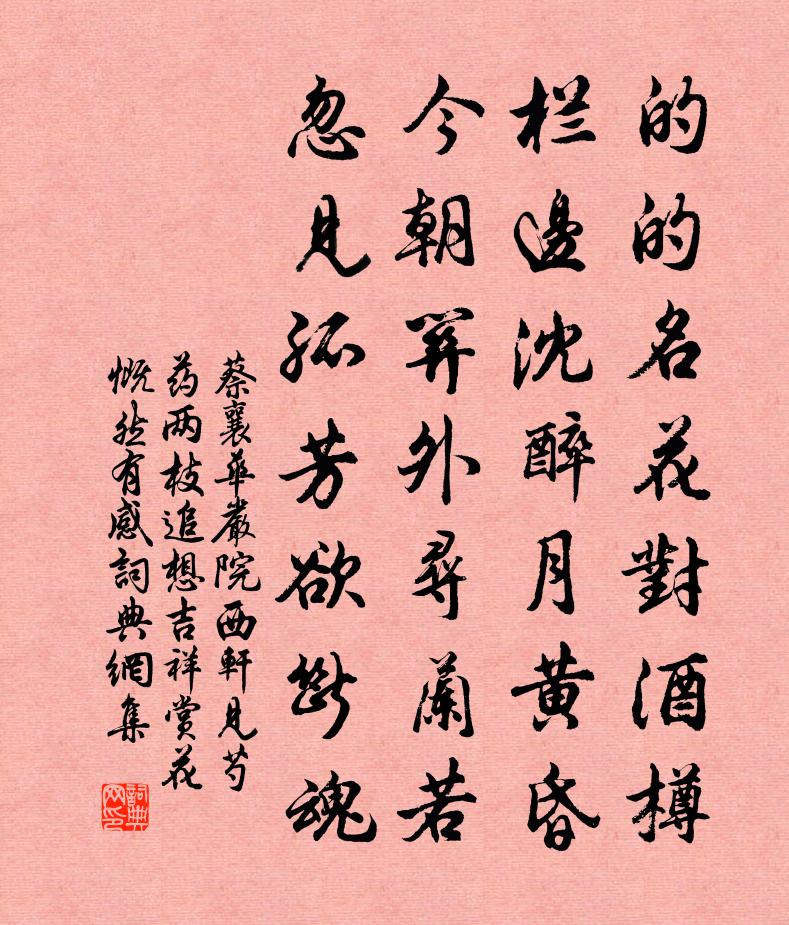 的的名花對酒樽
栏邊沈醉月黄昏
今朝關外尋蘭若
忽見孤芳欲斷魂
蔡襄華嚴院西軒見芍
药两枝追想吉祥赏花
慨然有感詞典網集
詞典网印